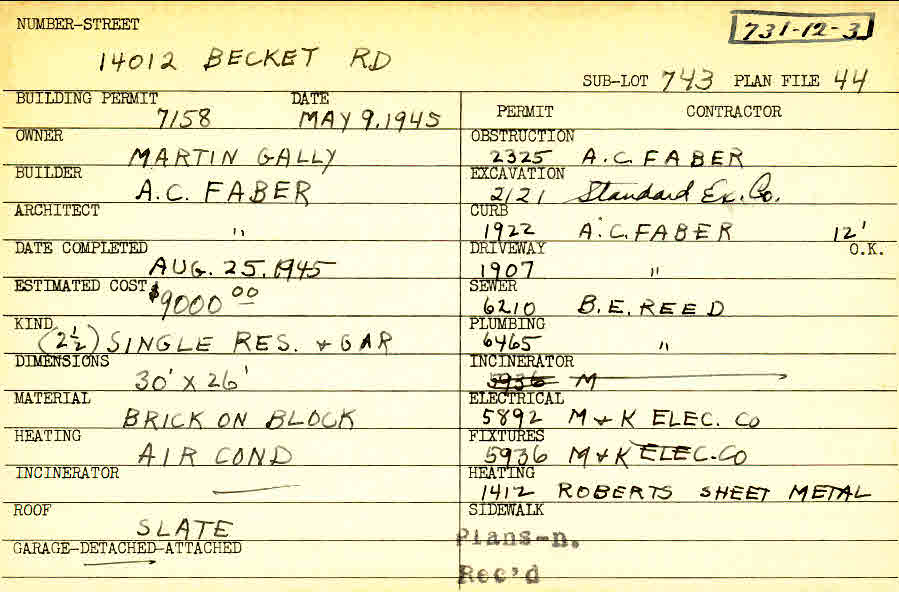 NUMBER-STREET
731-12-3
14012 BECKET RD
SUB-LOT 743 PLAN FILE 44
BUILDING PERMIT DATE
7158 MAY 9, 1945
OWNER
MARTIN GALLY
BUILDER
A.C. FABER
ARCHITECT
"
DATE COMPLETED
AUG. 25, 1945
ESTIMATED COST
$9000 00
KIND
(2½) SINGLE RES. + GAR
DIMENSIONS
30' X 26'
MATERIAL
BRICK ON BLOCK
HEATING
AIR COND
INCINERATOR
ROOF
SLATE
GARAGE-DETACHED-ATTACHED
PERMIT CONTRACTOR
OBSTRUCTION
2325 A.C. FABER
EXCAVATION
2121 Standard Ex. Co.
CURB
1922 A.C. FABER 12'
DRIVEWAY O.K.
1907 "
SEWER
6210 B.E. REED
PLUMBING
6465 "
INCINERATOR
5936 M
ELECTRICAL
5892 M + K ELEC. Co
FIXTURES
5936 M + K ELEC. CO
HEATING
1412 ROBERTS SHEET METAL
SIDEWALK
Plans-n.
Rec'd